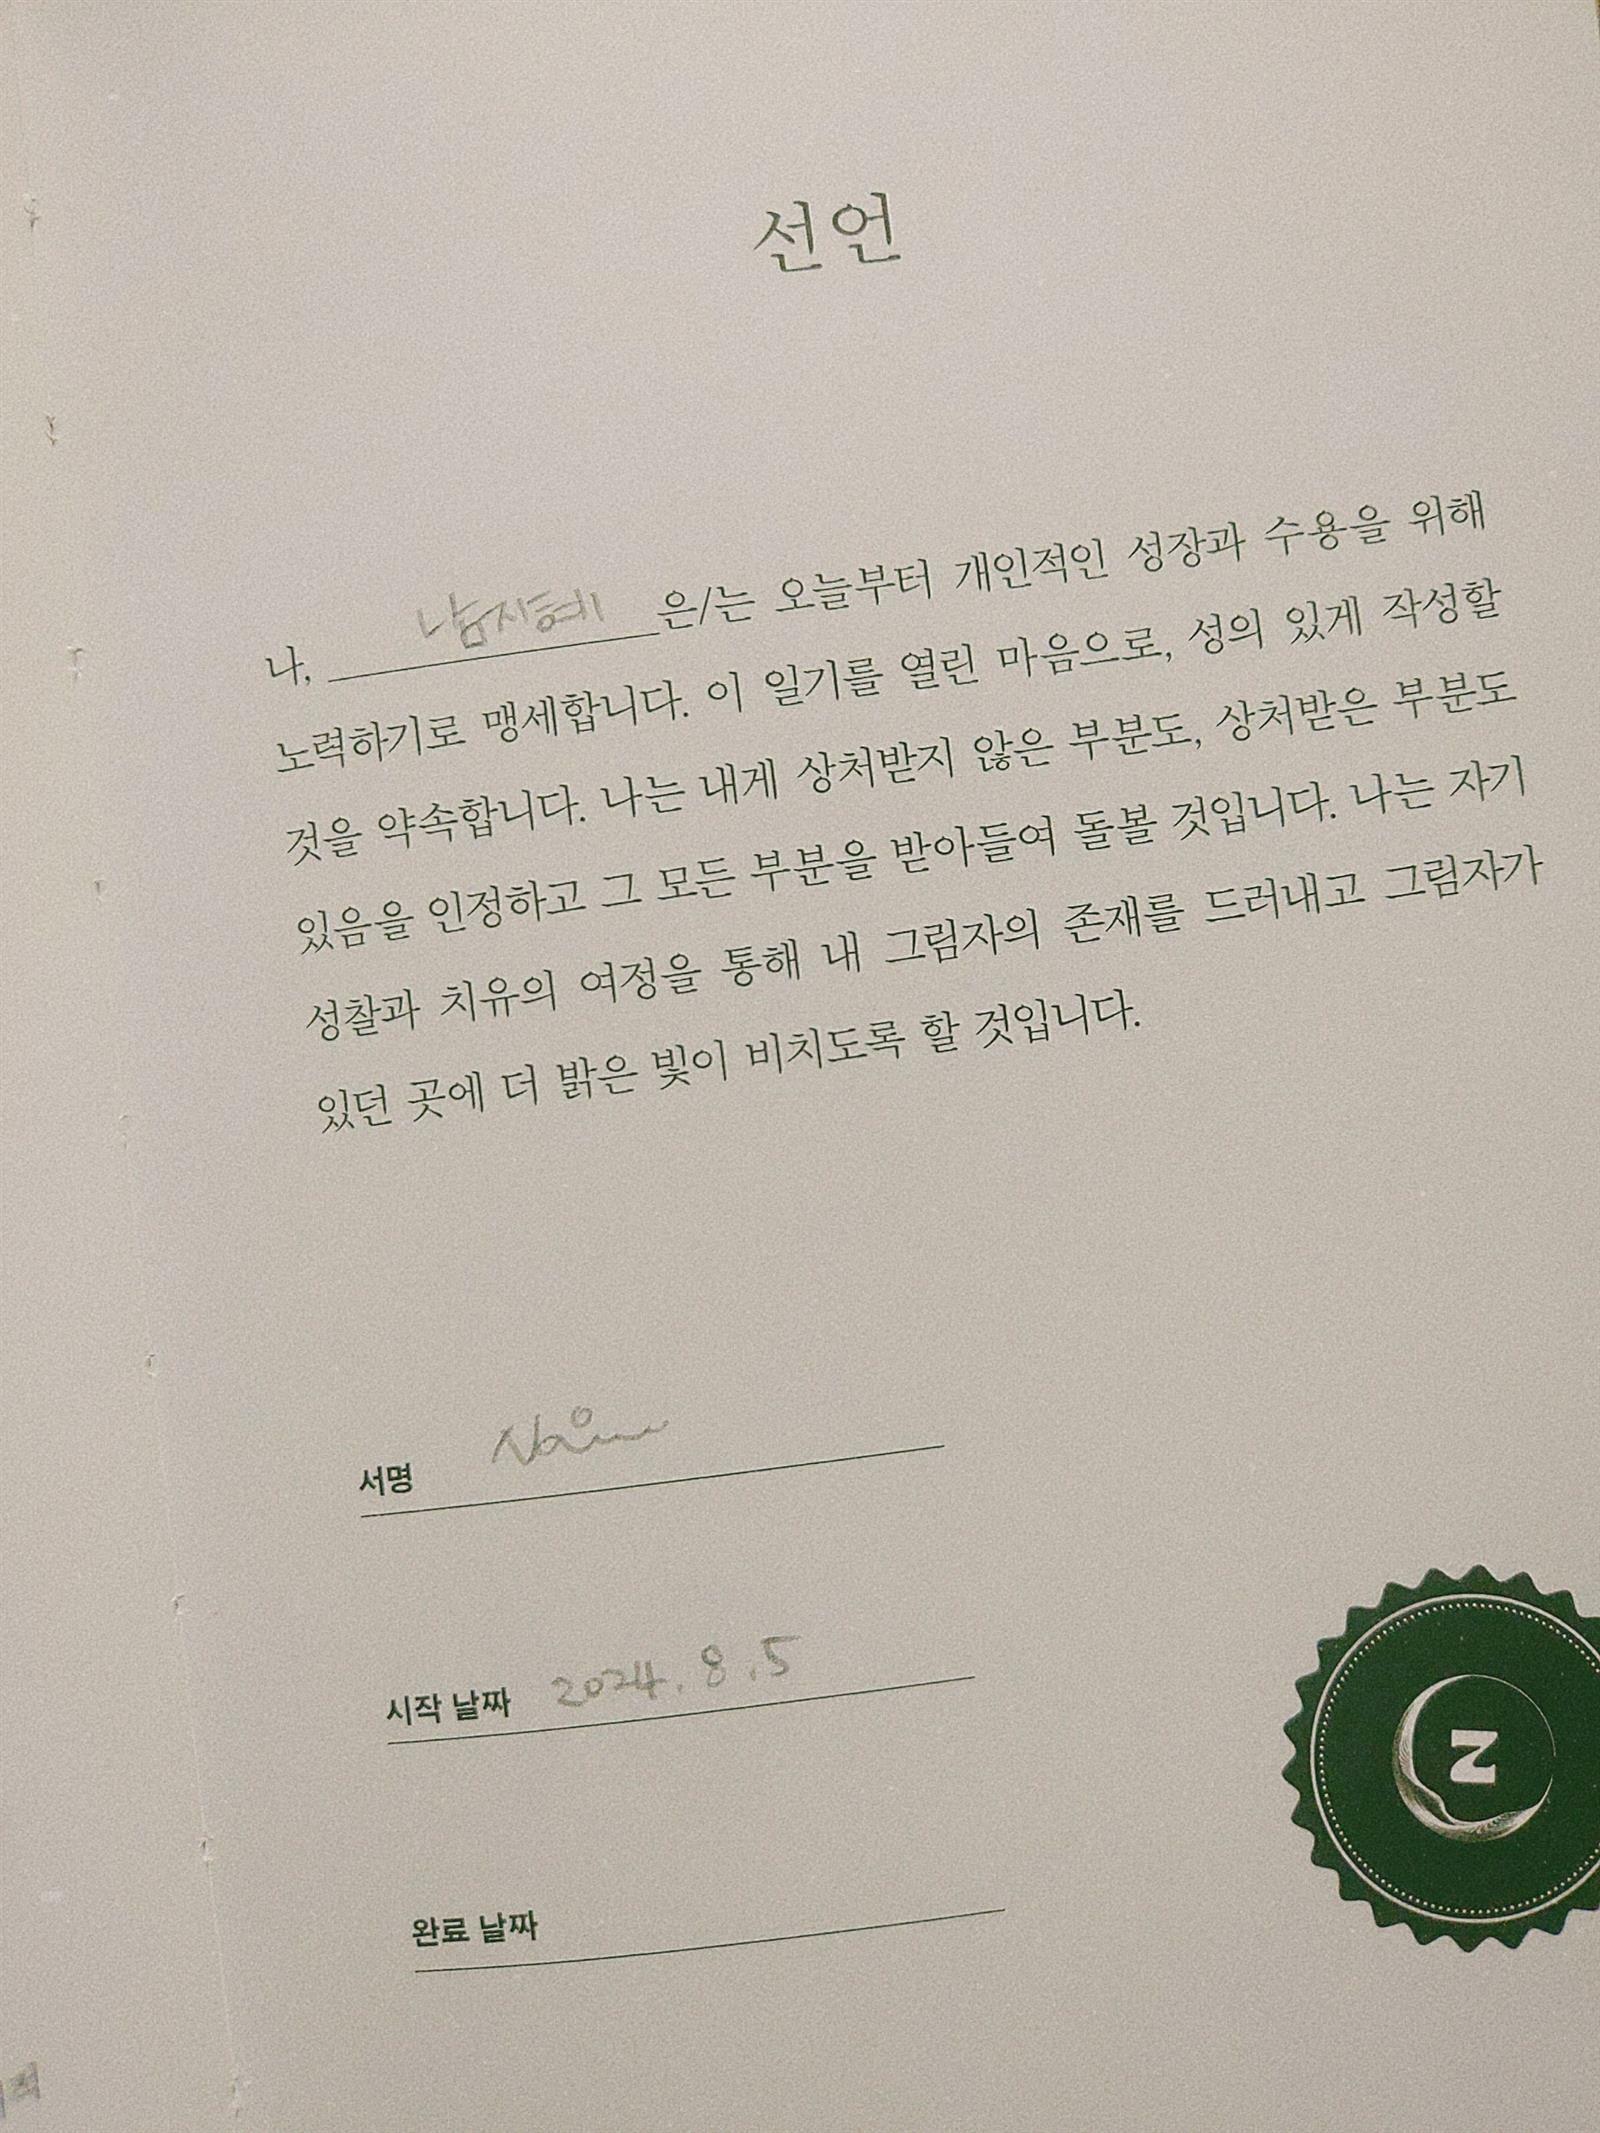 선언
나, 남지혜 은/는 오늘부터 개인적인 성장과 수용을 위해
노력하기로 맹세합니다. 이 일기를 열린 마음으로, 성의 있게 작성할
것을 약속합니다. 나는 내게 상처받지 않은 부분도, 상처받은 부분도
있음을 인정하고 그 모든 부분을 받아들여 돌볼 것입니다. 나는 자기
성찰과 치유의 여정을 통해 내 그림자의 존재를 드러내고 그림자가
있던 곳에 더 밝은 빛이 비치도록 할 것입니다.
서명
시작 날짜 2024. 8. 5
완료 날짜
Z